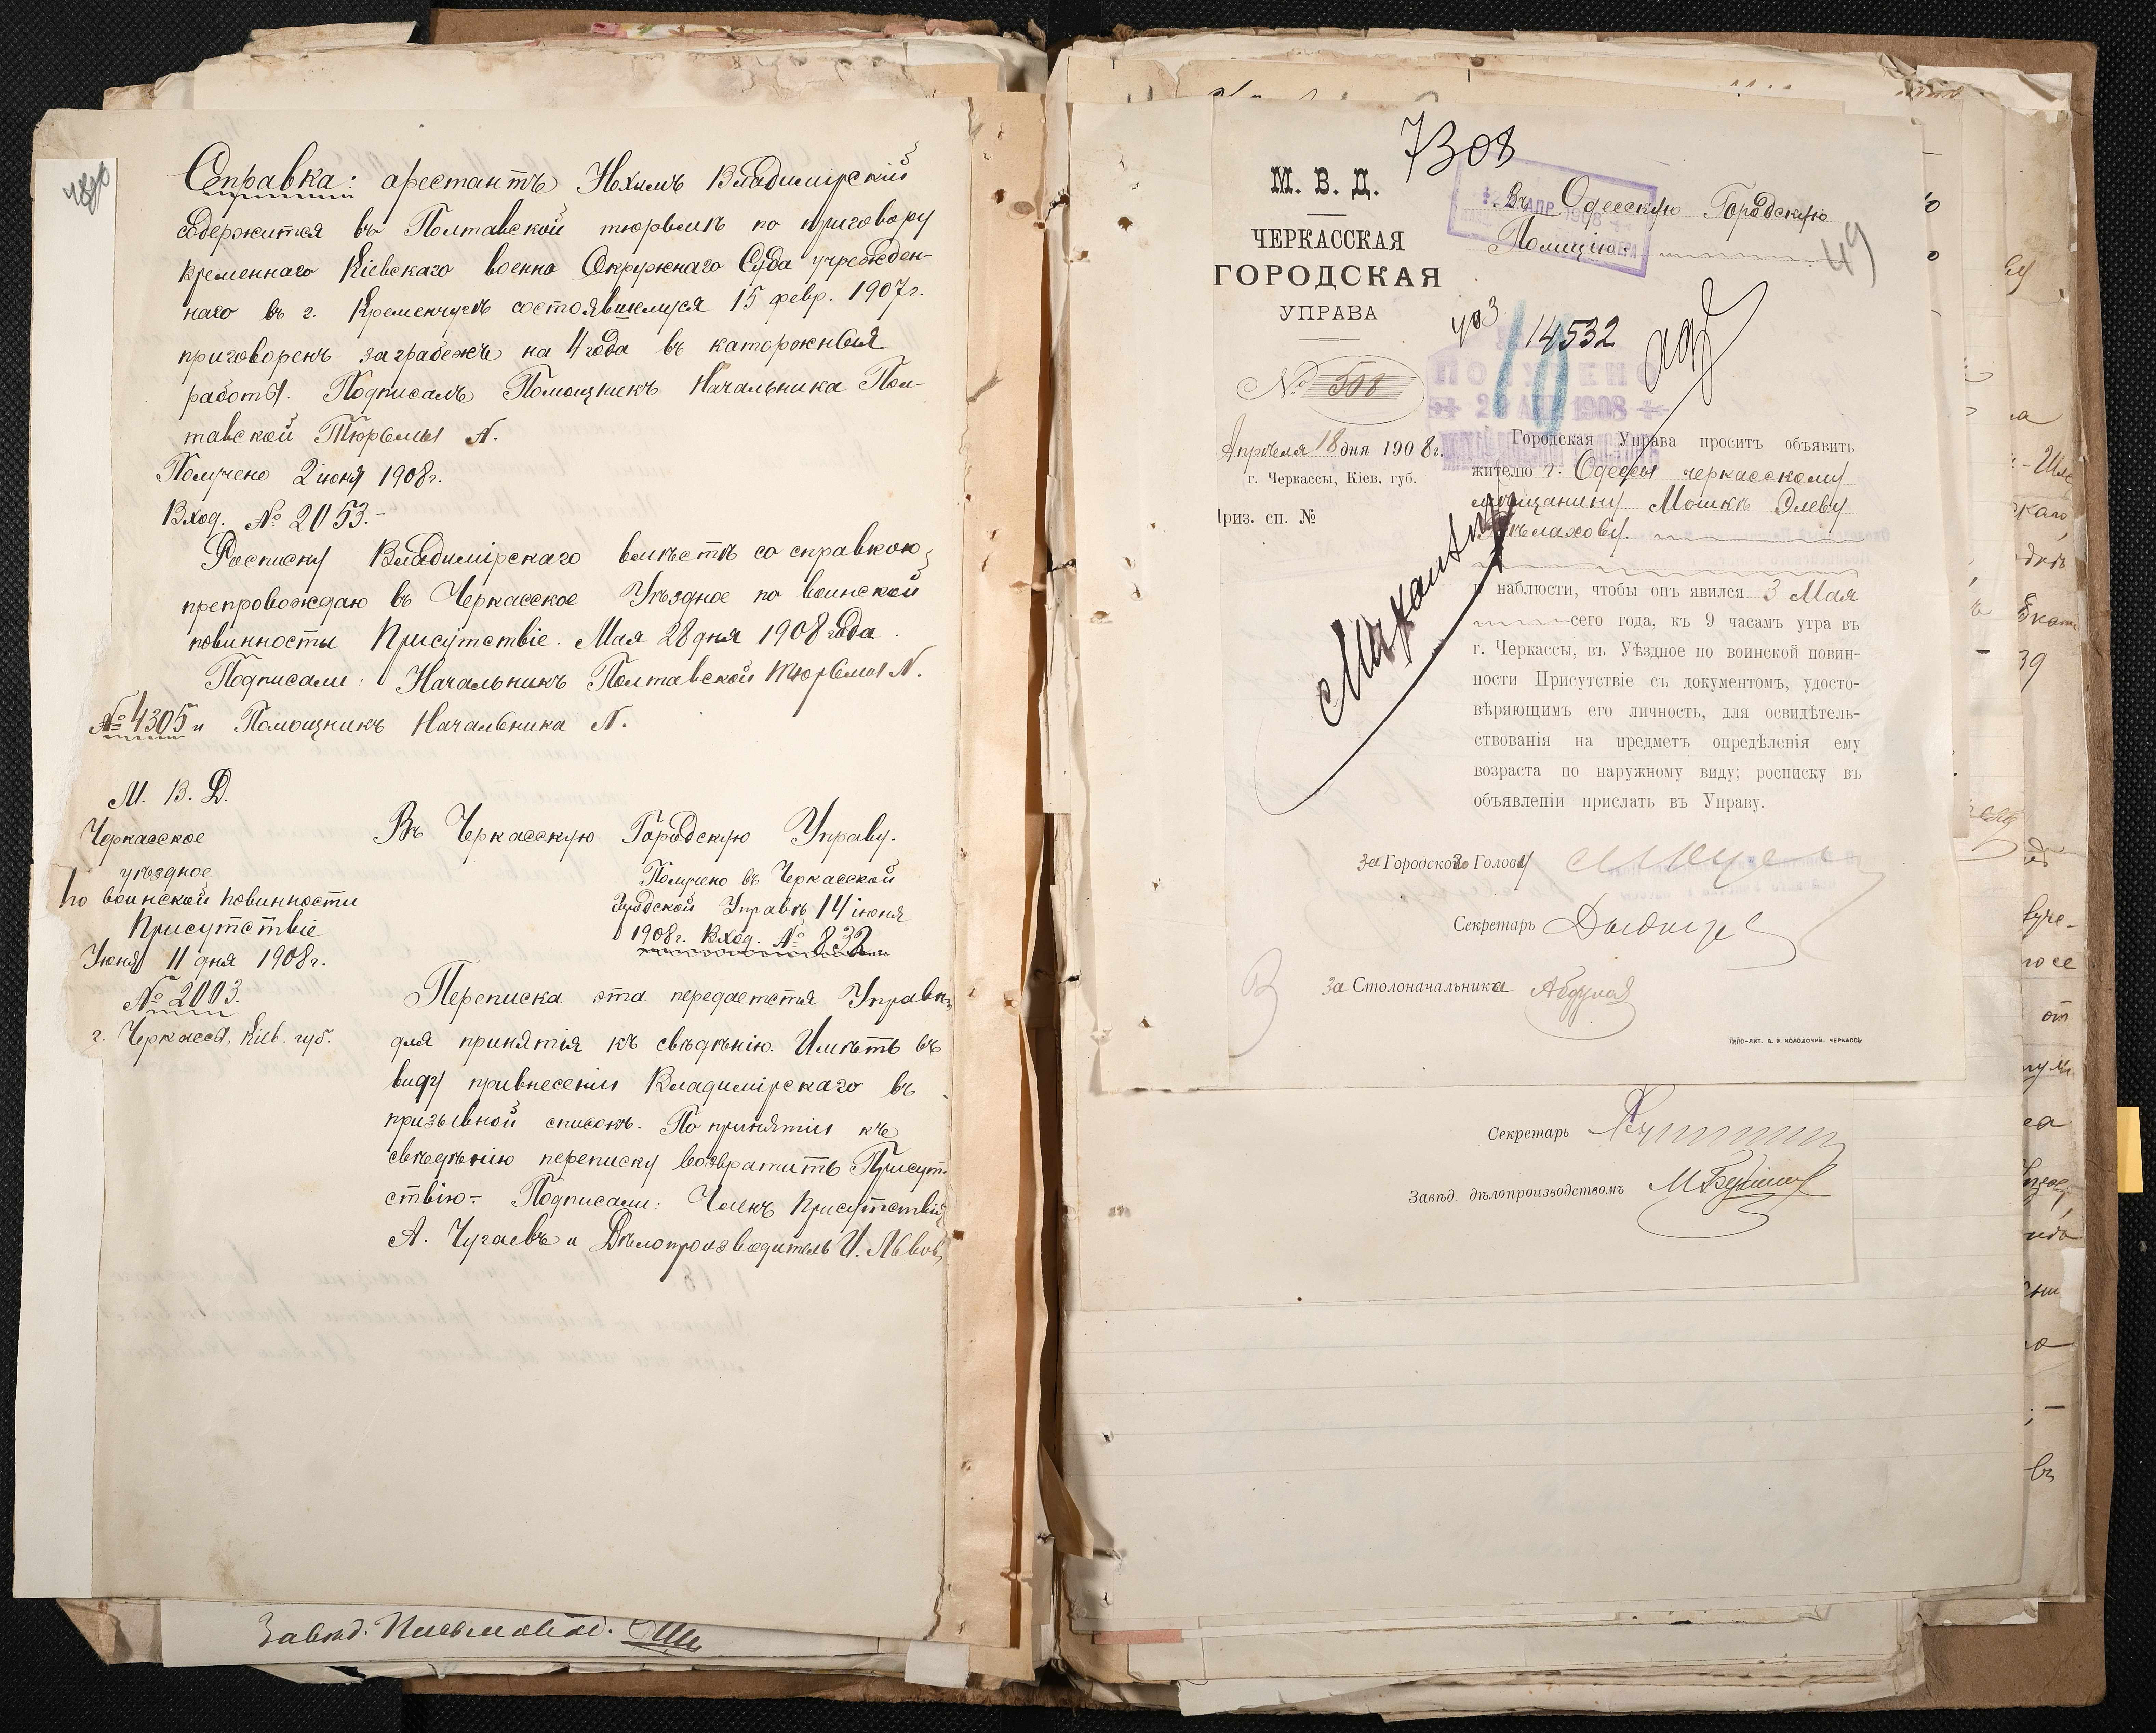 Справка: арестантъ Нохимъ Владимірскій
содержится въ Полтавской тюрьмѣ по приговору
временнаго Кіевскаго военно Окружнаго Суда учрежден-
наго въ г. Кременчугѣ состоявшемуся 15 февр. 1907г.
приговоренъ за грабежъ на 4 года въ каторжныя
работы. Подписалъ Помощникъ Начальника Пол-
тавской Тюрьмы N.
Получено 2 іюня 1908г.
Вход. № 2053.-
Росписку Владимірскаго вмѣстѣ со справкою
препровождаю въ Черкасское Уѣздное по воинской
повинности Присутствіе. Мая 28 дня 1908 года.
Подписали: Начальникъ Полтавской Тюрьмы N.
№ 4305 и Помощникъ Начальника N.
М. В. Д.
Черкасское
уѣздное
по воинской повинности
Присутствіе
Іюня 11 дня 1908г.
№ 2003.
г. Черкассы, Кіев. губ.
Въ Черкасскую Городскую Управу.
Получено въ Черкасской
Городской Управѣ 14 іюня
1908г. Вход. № 832
Переписка эта передается Управѣ
для принятія къ свѣдѣнію. Имѣть въ
виду привнесеніи Владимірскаго въ
призывной списокъ. По принятіи къ
свѣдѣнію переписку возвратить Присут-
ствію- Подписали: Членъ Присутствія
А. Чугаевъ и Дѣлопроизводитель И. Львовъ
Завѣд.
7308
М. В. Д.
ЧЕРКАССКАЯ
ГОРОДСКАЯ
УПРАВА
№ 508
Апрѣля 18 дня 1908 г.
г. Черкассы, Кіев. губ.
Приз. сп. №
Въ Одесскую Городскую
Полицію.
49
14532
10
ПОЛУЧЕНО
1908
Городская Управа проситъ объявить
жителю г. Одессы черкасскому
мѣщанину Мошкѣ Элеву
наблюсти, чтобы онъ явился 3 Мая
сего года, къ 9 часамъ утра въ
г. Черкассы, въ Уѣздное по воинской повин-
ности Присутствіе съ документомъ, удосто-
вѣряющимъ его личность, для освидѣтель-
ствованія на предметъ опредѣленія ему
возраста по наружному виду; росписку въ
объявленіи прислать въ Управу.
За Городского Голову
Секретарь
За Столоначальника
Секретарь
Завѣд. дѣлопроизводствомъ